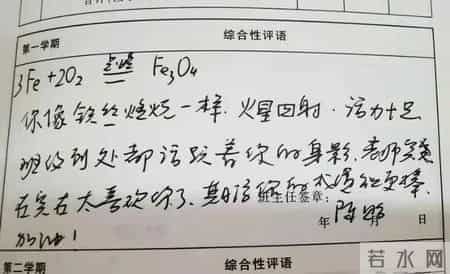 第一学期
综合性评语
3Fe+2O2 点燃 Fe3O4
你像铁丝燃烧一样，火星四射，活力十足
班级到处都活跃着你的身影，老师实
在实在太喜欢你了，期待你的
班主任签章：
加油！
年 月 日
第二学期
综合性评语
若水网